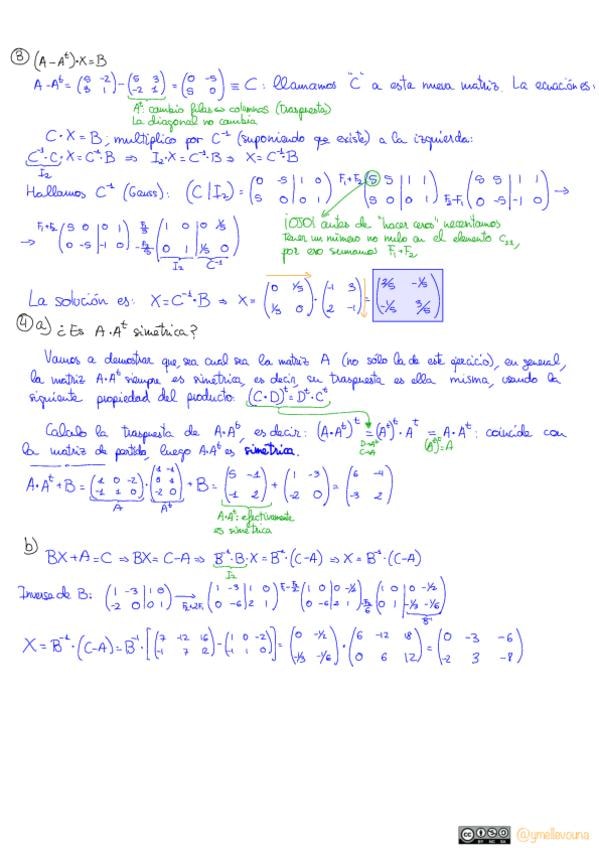 ③ (A-Aᵗ)·X=B
A-Aᵗ=(5 -2; 3 1)-(5 3; -2 1)=(0 -5; 5 0) ≡ C: llamamos "C" a esta nueva matriz. La ecuación es:
Aᵗ: cambio filas ↔ columnas (traspuesta)
La diagonal no cambia
C·X=B; multiplico por C⁻¹ (suponiendo que existe) a la izquierda:
C⁻¹·C·X=C⁻¹·B ⇒ I₂·X=C⁻¹·B ⇒ X=C⁻¹·B
I₂
Hallamos C⁻¹ (Gauss): (C|I₂)=(0 -5|1 0; 5 0|0 1) F₁+F₂ (5 -5|1 1; 5 0|0 1) F₂-F₁ →
→ F₁+F₂ (5 0|0 1; 0 -5|-1 0) (1 0|0 1/5; 0 1|1/5 0)
I₂ C⁻¹
¡OJO! antes de "hacer ceros" necesitamos
tener un número no nulo en el elemento c₁₁,
por eso sumamos F₁+F₂
La solución es: X=C⁻¹·B ⇒ X=(0 1/5; 1/5 0)·(-1 3; 2 -1)=(2/5 -1/5; -1/5 3/5)
④ a) ¿Es A·Aᵗ simétrica?
Vamos a demostrar que, sea cual sea la matriz A (no sólo la de este ejercicio), en general,
la matriz A·Aᵗ siempre es simétrica, es decir, su traspuesta es ella misma, usando la
siguiente propiedad del producto: (C·D)ᵗ=Dᵗ·Cᵗ
Calculo la traspuesta de A·Aᵗ, es decir: (A·Aᵗ)ᵗ=(Aᵗ)ᵗ·Aᵗ=A·Aᵗ: coincide con
D→Aᵗ
C→A
(Aᵗ)ᵗ=A
la matriz de partida, luego A·Aᵗ es simétrica.
A·Aᵗ+B=(1 0 -2; -1 1 0)·(1 -1; 0 1; -2 0)+B=(5 -1; -1 2)+(1 -3; -2 0)=(6 -4; -3 2)
A Aᵗ
A·Aᵗ: efectivamente
es simétrica
b) BX+A=C ⇒ BX=C-A ⇒ B⁻¹·B·X=B⁻¹·(C-A) ⇒ X=B⁻¹·(C-A)
I₂
Inversa de B: (1 -3|1 0; -2 0|0 1) → F₂+2F₁ (1 -3|1 0; 0 -6|2 1) F₁-F₂/2 (1 0|0 -1/2; 0 -6|2 1) (1 0|0 -1/2; 0 1|-1/3 -1/6)
B⁻¹
X=B⁻¹·(C-A)=B⁻¹·[(7 -12 16; -1 7 12)-(1 0 -2; -1 1 0)]=(0 -1/2; -1/3 -1/6)·(6 -12 18; 0 6 12)=(0 -3 -6; -2 3 -8)
BY NC SA
@ymellevouna